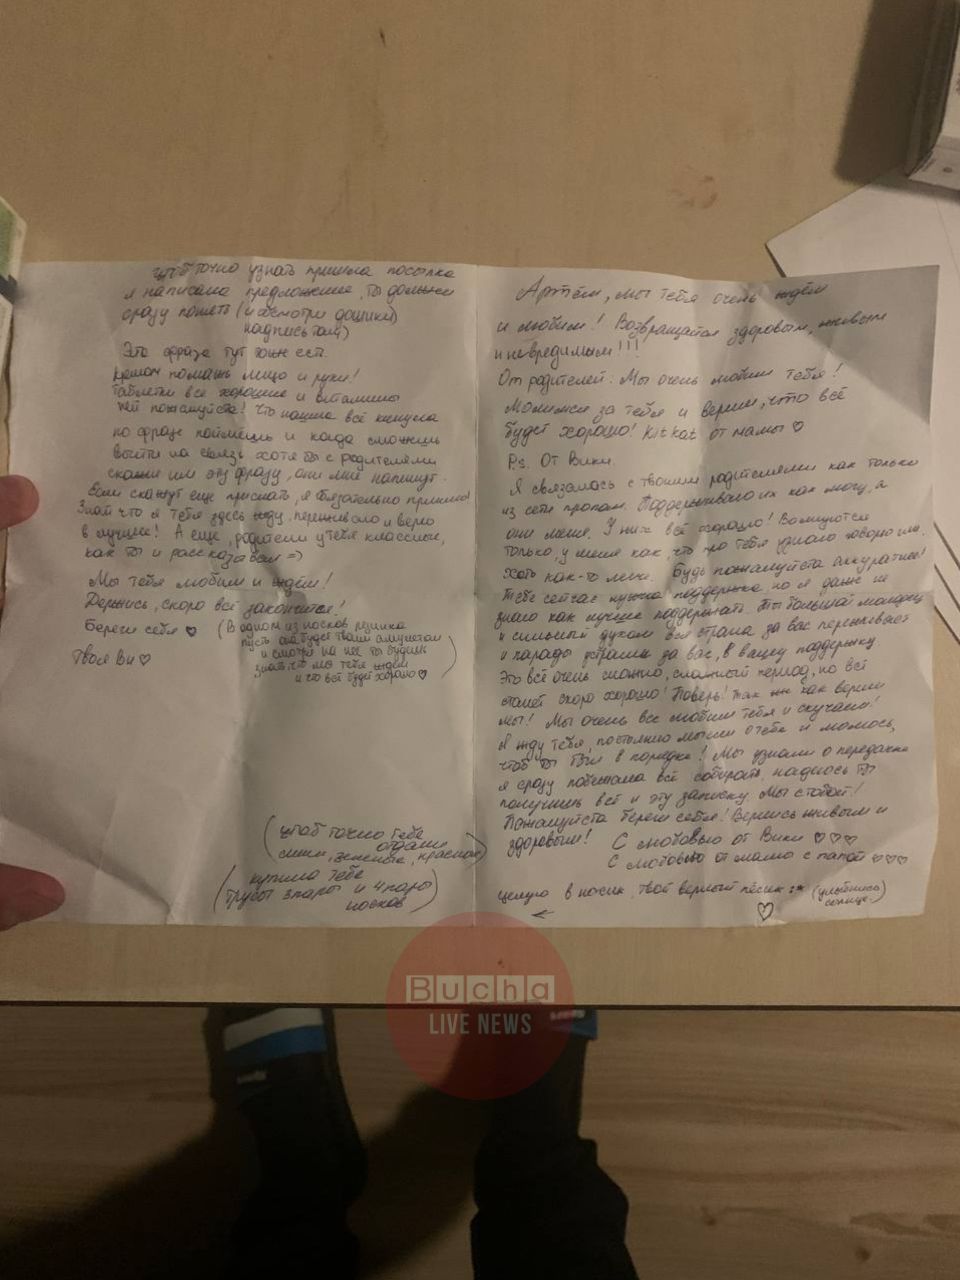 Артём, мы тебя очень ждём
и любим! Возвращайся здоровым, живым
и невредимым!!!
От родителей: Мы очень любим тебя!
Молимся за тебя и верим, что всё
будет хорошо! Kitkat от мамы ♡
P.s. От Вики.
Я связалась с твоими родителями как только
из сети пропал. Поддерживаю их как могу, а
они меня. У них всё хорошо! Волнуются
только, у меня как, что про тебя узнаю
хоть как-то легче. Будь пожалуйста аккуратнее!
Тебе сейчас нужна поддержка, но я даже не
знаю как лучше поддержать. Ты большой молодец
и сильный духом вся страна за вас переживает
и парады за вас, в вашу поддержку
Это всё очень сложно, сложный период, но всё
станет скоро хорошо! Поверь! Так же как верим
мы! Мы очень все любим тебя и скучаем!
Я жду тебя, постоянно мысли о тебе и молюсь,
чтоб ты был в порядке! Мы узнали о передачке
я сразу побежала всё собирать, надеюсь ты
получишь всё и эту записку. Мы с тобой!
Пожалуйста береги себя! Вернись живым и
здоровым!
С любовью от Вики ♡♡♡
С любовью от мамы с папой ♡♡♡
целую в носик, твой верный пёсик :* (улыбнись
солнце)
♡
←
чтоб точно узнать пришла посылка
я написала предложение, ты должен
сразу понять (и осмотри дошики)
надпись там)
Эта фраза тут тоже есть.
кремом помажь лицо и руки!
таблетки все хорошие и витамины
пей пожалуйста! Что нашла всё
по фразе поймёшь и когда сможешь
выйти на связь хотя бы с родителями
скажи им эту фразу, они мне напишут.
Если скажут еще прислать, я обязательно пришлю!
Знай что я тебя здесь жду, переживаю и верю
в лучшее! А еще, родители у тебя классные,
как ты и рассказывал =)
Мы тебя любим и ждём!
Держись, скоро всё закончится!
Береги себя ♡ (В одном из носков резинка
пусть она будет твоим амулетом
и смотря на неё ты будешь
знать что мы тебя ждём
и что всё будет хорошо ♡)
Твоя Ви ♡
(чтоб точно тебе
отдали
синие, зеленые, красное)
(купила тебе
трусы 3 пары и 4 пары
носков)
Bucha
LIVE NEWS